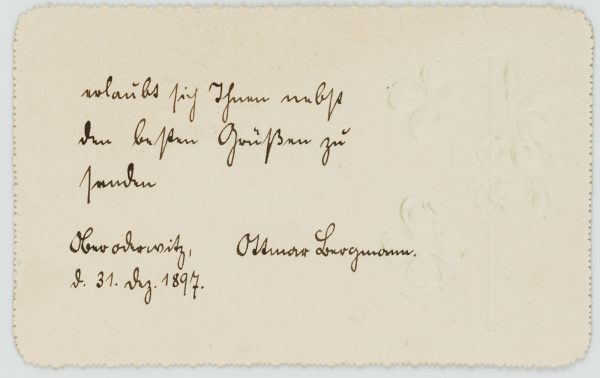 erlaubt sich Ihnen nebst
den besten Grüßen zu
senden
Oberoderwitz, Ottmar Bergmann.
d. 31. Dez. 1897.